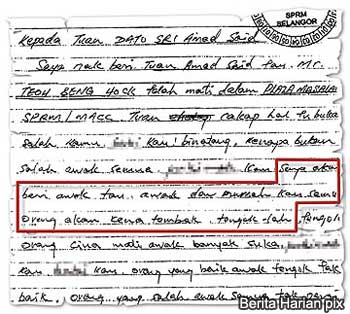 SPRM
SELANGOR
Kepada Tuan DATO SRI Amad Said
Saya nak beri Tuan Amad Said tau. MR.
TEOH BENG HOCK telah mati dalam
SPRM/MACC. Tuan cakap hal tu bukan
salah kamu kau binatang, kenapa bukan
salah awak semua kau Saya akan
beri awak tau. awak dan rumah kau semua
orang akan kena tembak tengok lah,
orang cina mati awak banyak suka,
kau kau. orang yang baik awak tengok tak
baik, orang yang salah awak
Berita Harian pix